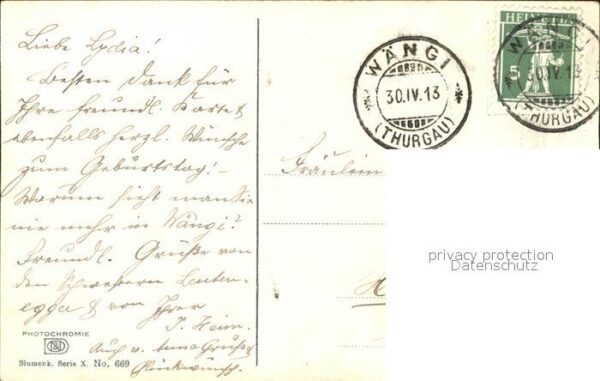 Liebe Lydia!
Besten Dank für
Ihre freundl. Karte &
ebenfalls herzl. Wünsche
zum Geburtstag!
Warum sieht man Sie
nie mehr in Wängi?
Freundl. Grüße von
den Schwestern Lauten-
egger & von Ihrer
J. Heim.
Auch v. Anna Gruß &
Glückwunsch.
PHOTOCHROMIE
Blumenk. Serie X. No. 669
WÄNGI
30.IV.13
(THURGAU)
HELVETIA
5
WÄNGI
30.IV.13
(THURGAU)
Fräulein
privacy protection
Datenschutz